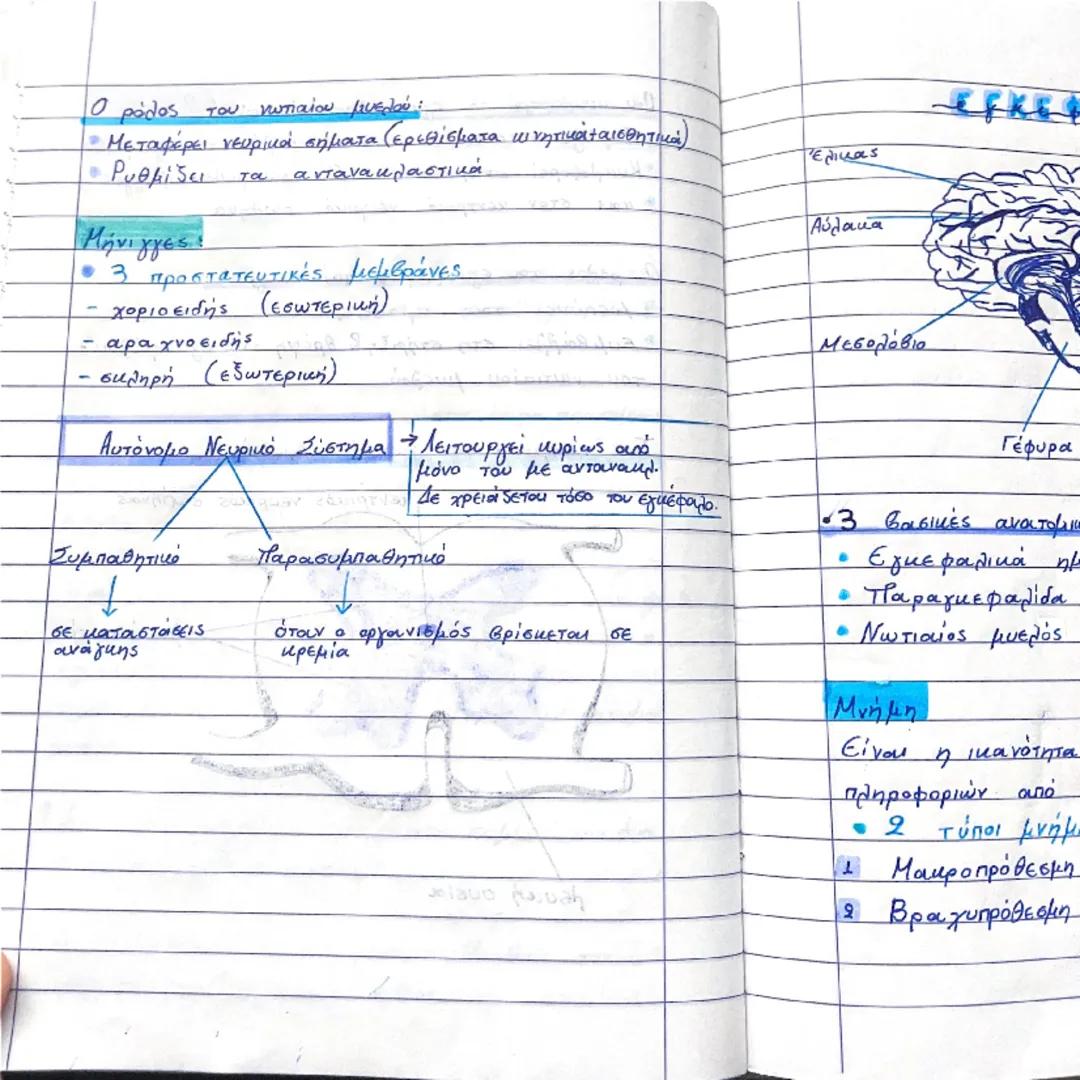 Ο ρόλος του νωτιαίου μυελού:
• Μεταφέρει νευρικά σήματα (ερεθίσματα κινητικά+αισθητικά)
• Ρυθμίζει τα αντανακλαστικά
Μήνιγγες:
• 3 προστατευτικές μεμβράνες
- χοριοειδής (εσωτερική)
- αραχνοειδής
- σκληρή (εξωτερική)
Αυτόνομο Νευρικό Σύστημα
→ Λειτουργεί κυρίως από
μόνο του με αντανακλ.
Δε χρειάζεται τόσο τον εγκέφαλο.
Συμπαθητικό
Παρασυμπαθητικό
σε καταστάσεις
ανάγκης
όταν ο οργανισμός βρίσκεται σε
κρεμία
λευκή ουσία
ΕΓΚΕΦ
Έλικας
Αύλακα
Μεσολόβιο
Γέφυρα
• 3 βασικές ανατομικ
• Εγκεφαλικά ημ
• Παραγκεφαλίδα
• Νωτιαίος μυελός
Μνήμη
Είναι η ικανότητα
πληροφοριών από
• 2 τύποι μνήμ
1 Μακροπρόθεσμη
2 Βραχυπρόθεσμη